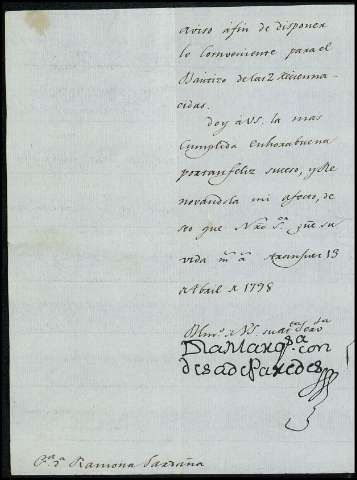 aviso á fin de disponer
lo conveniente para el
Bautizo de las 2 recienna-
cidas.
Doy a VS. la mas
cumplida enhorabuena
por tan feliz suceso, y Re
novandola mi afecto, de
seo que Nro Sr. gue su
vida ms. as. Aranjuez 13
de Abril de 1798
Blmo. de VS su
La Marqsa. con
desa de Paredes
Sra. Da. Ramona